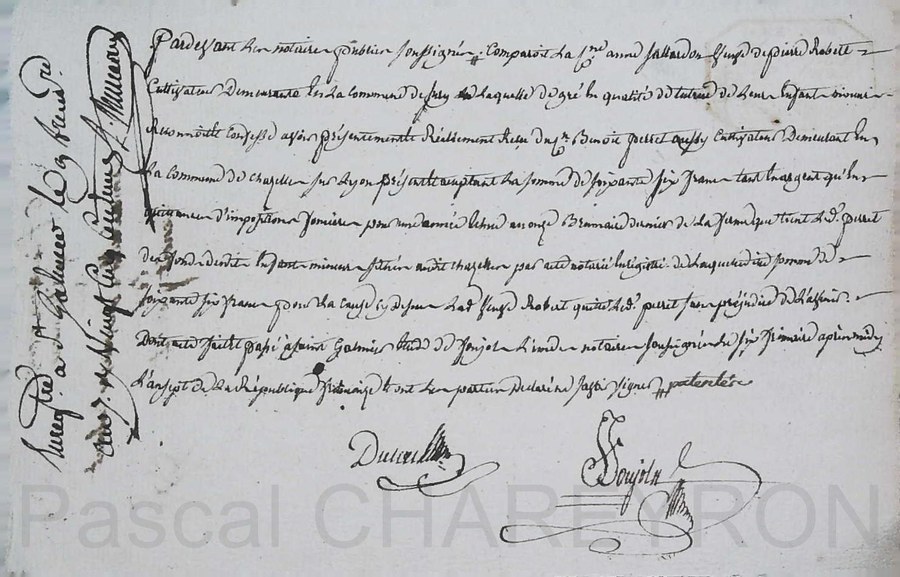 Pardevant Les notaires publics soussignés ; Comparoit La Cne anne jallardon Veuve de pierre Robert
Cultivateur Demeurante En La Commune de Laquelle de gré En qualité de tutrice de Leurs Enfant mineur
Reconnoit & Confesse avoir présentement & Réellement Reçu du Cn Benoit perret aussy Cultivateur Demeurant En
La Commune de chazelles sur Lyon présent & acceptant La somme de soixante six francs tant En argent qu'En
quittances d'impositions foncieres pour une année Echue au onze Brumaire dernier de La ferme que tient Led. perret
des fonds desdits Enfant mineur audit chazelles par acte notarié Enregistré de Laquelle ditte somme de
soixante six francs pour La Cause cy dessus Lad. Veuve Robert quitte Led. perret sans préjudice de
Dont acte fait & passé à saint Galmier Etude de Ponjol L'un des notaires soussignés Le six frimaire après midy
L'an sept de La République françoise & ont Les parties Déclaré ne savoir signer patentés
Ponjol
Enregtré à St Galmier Le
an 7. Vingt Cinq Centimes
Pascal CHAREYRON